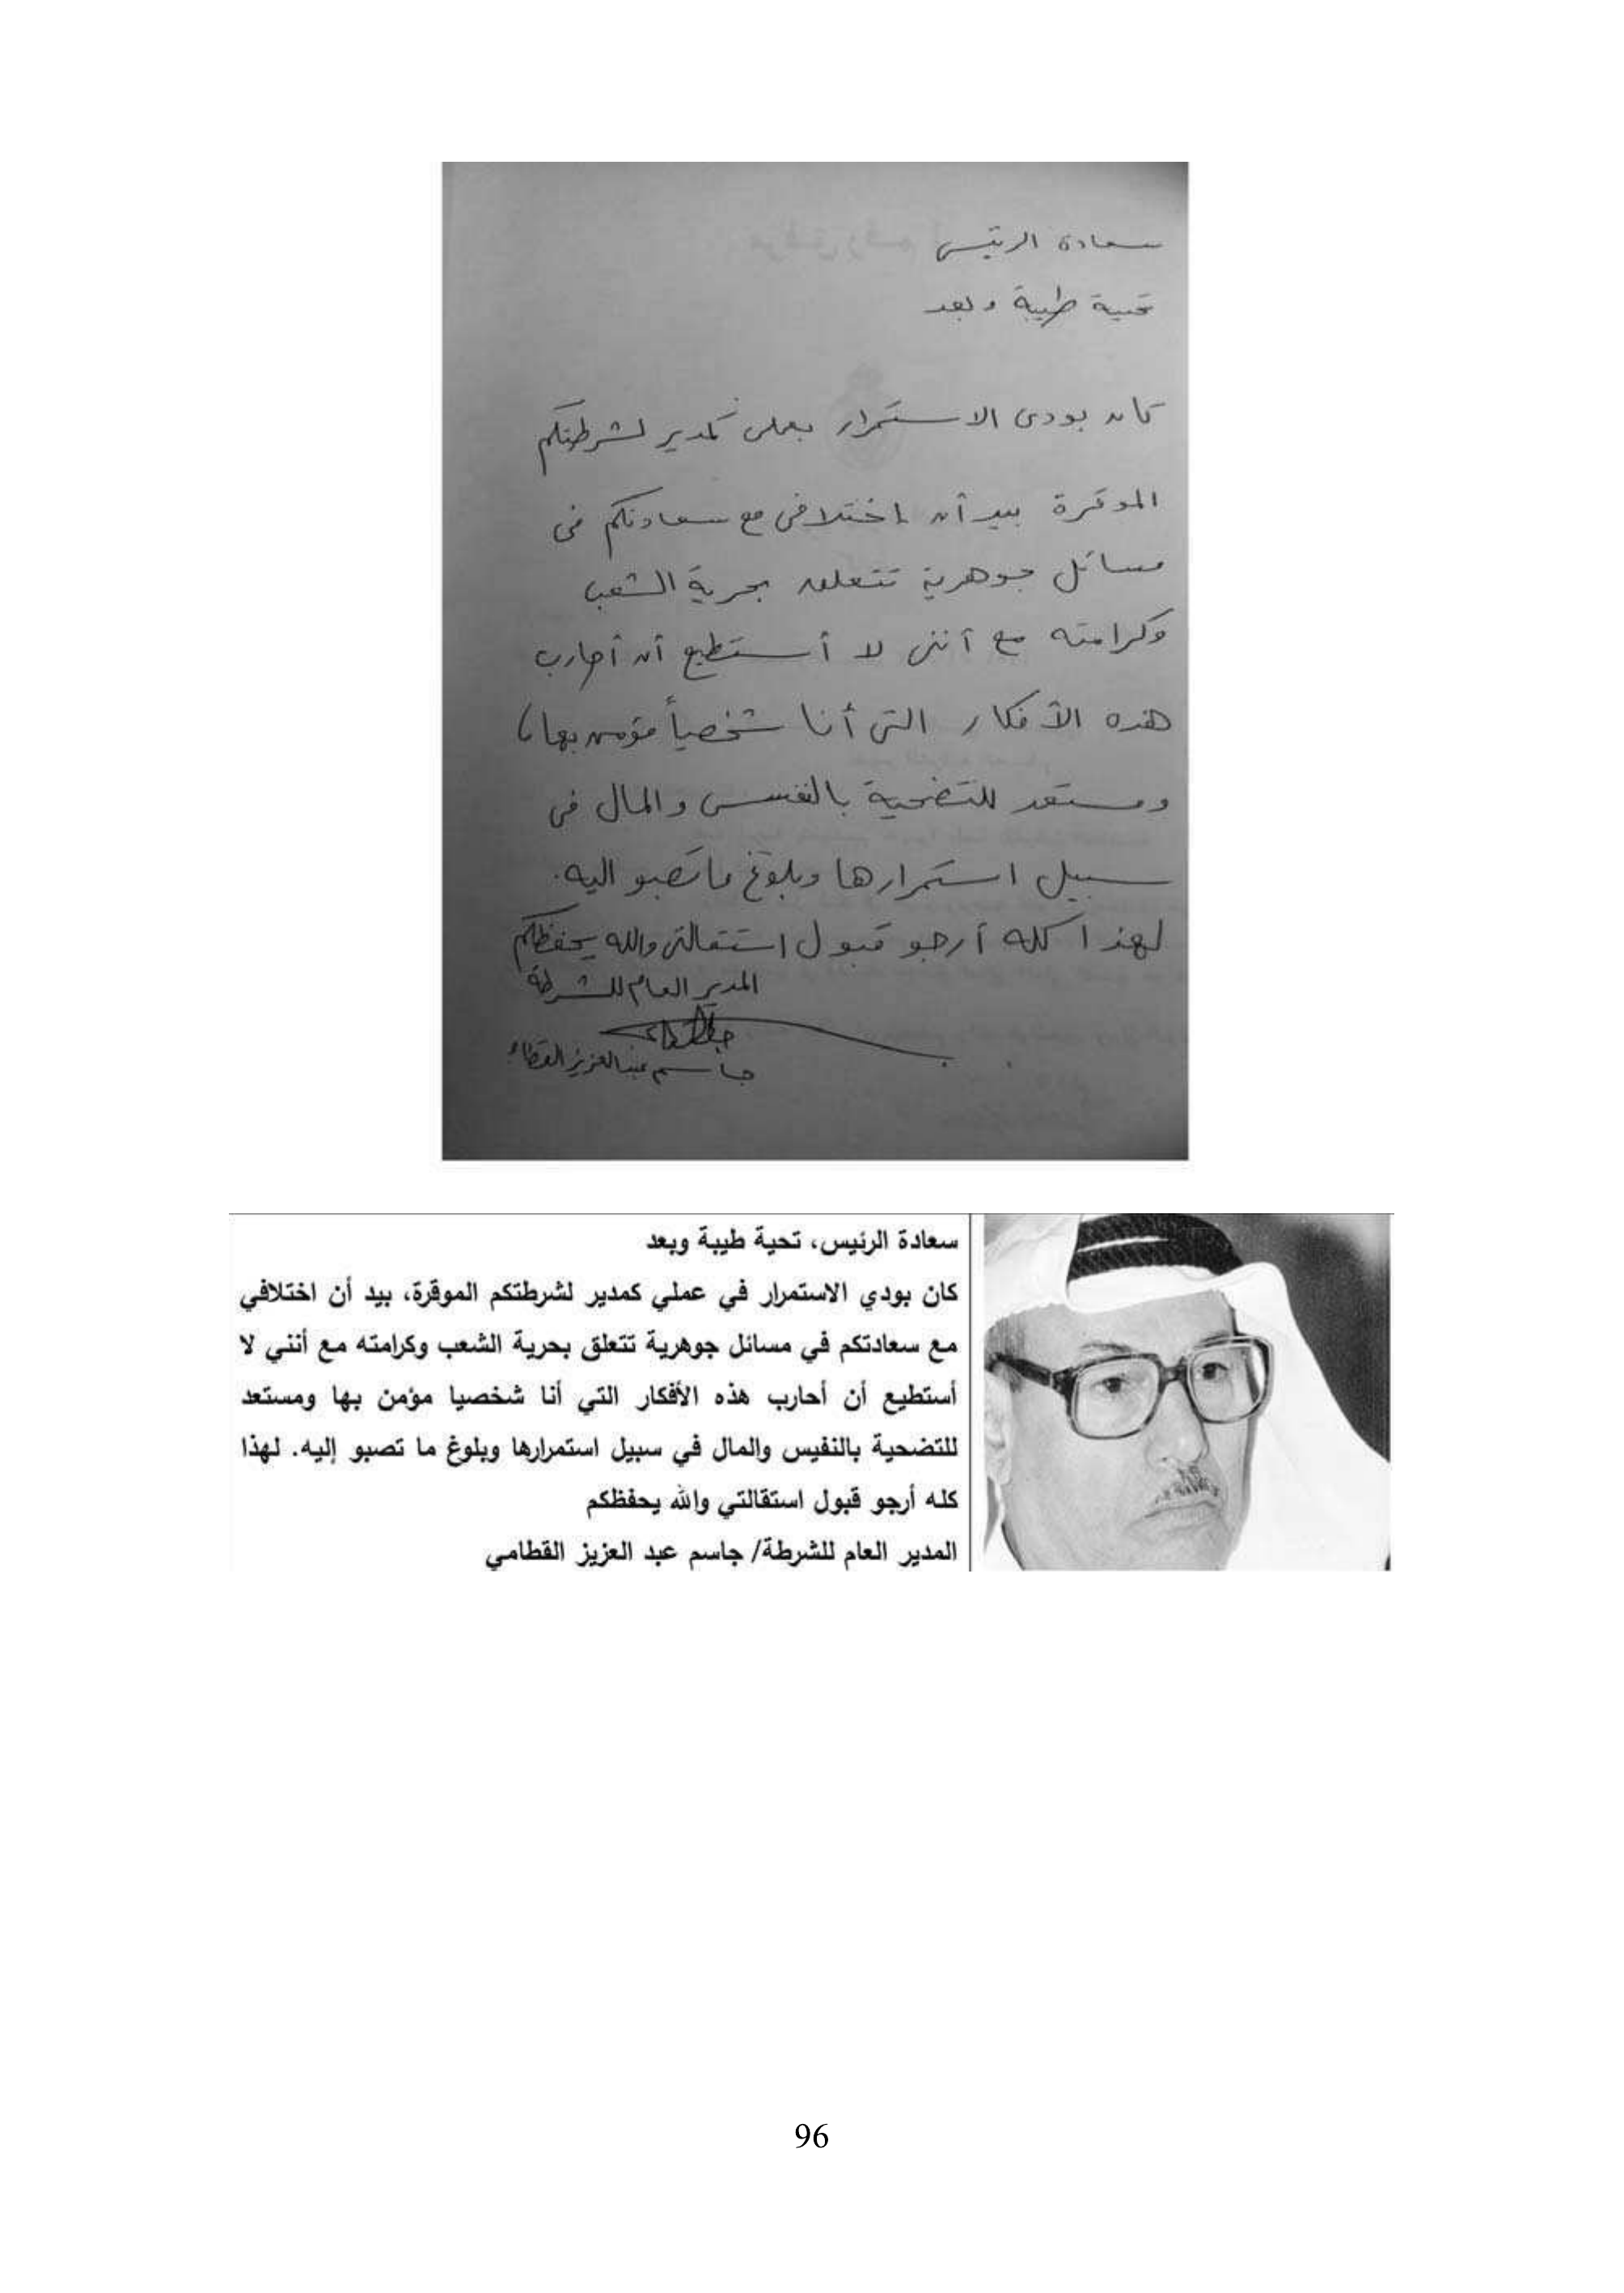 سعادة الرئيس
تحية طيبة وبعد
كان بودى الاستمرار بعملى كمدير لشرطتكم
الموقرة بيد أن اختلافى مع سعادتكم فى
مسائل جوهرية تتعلق بحرية الشعب
وكرامته مع أننى لا أستطيع أن أحارب
هذه الأفكار التى أنا شخصياً مؤمن بها
ومستعد للتضحية بالنفس والمال فى
سبيل استمرارها وبلوغ ما تصبو اليه.
لهذا كله أرجو قبول استقالتى والله يحفظكم
المدير العام للشرطة
جاسم عبدالعزيز القطامي
سعادة الرئيس، تحية طيبة وبعد
كان بودي الاستمرار في عملي كمدير لشرطتكم الموقرة، بيد أن اختلافي
مع سعادتكم في مسائل جوهرية تتعلق بحرية الشعب وكرامته مع أنني لا
أستطيع أن أحارب هذه الأفكار التي أنا شخصيا مؤمن بها ومستعد
للتضحية بالنفيس والمال في سبيل استمرارها وبلوغ ما تصبو إليه. لهذا
كله أرجو قبول استقالتي والله يحفظكم
المدير العام للشرطة/ جاسم عبد العزيز القطامي
96